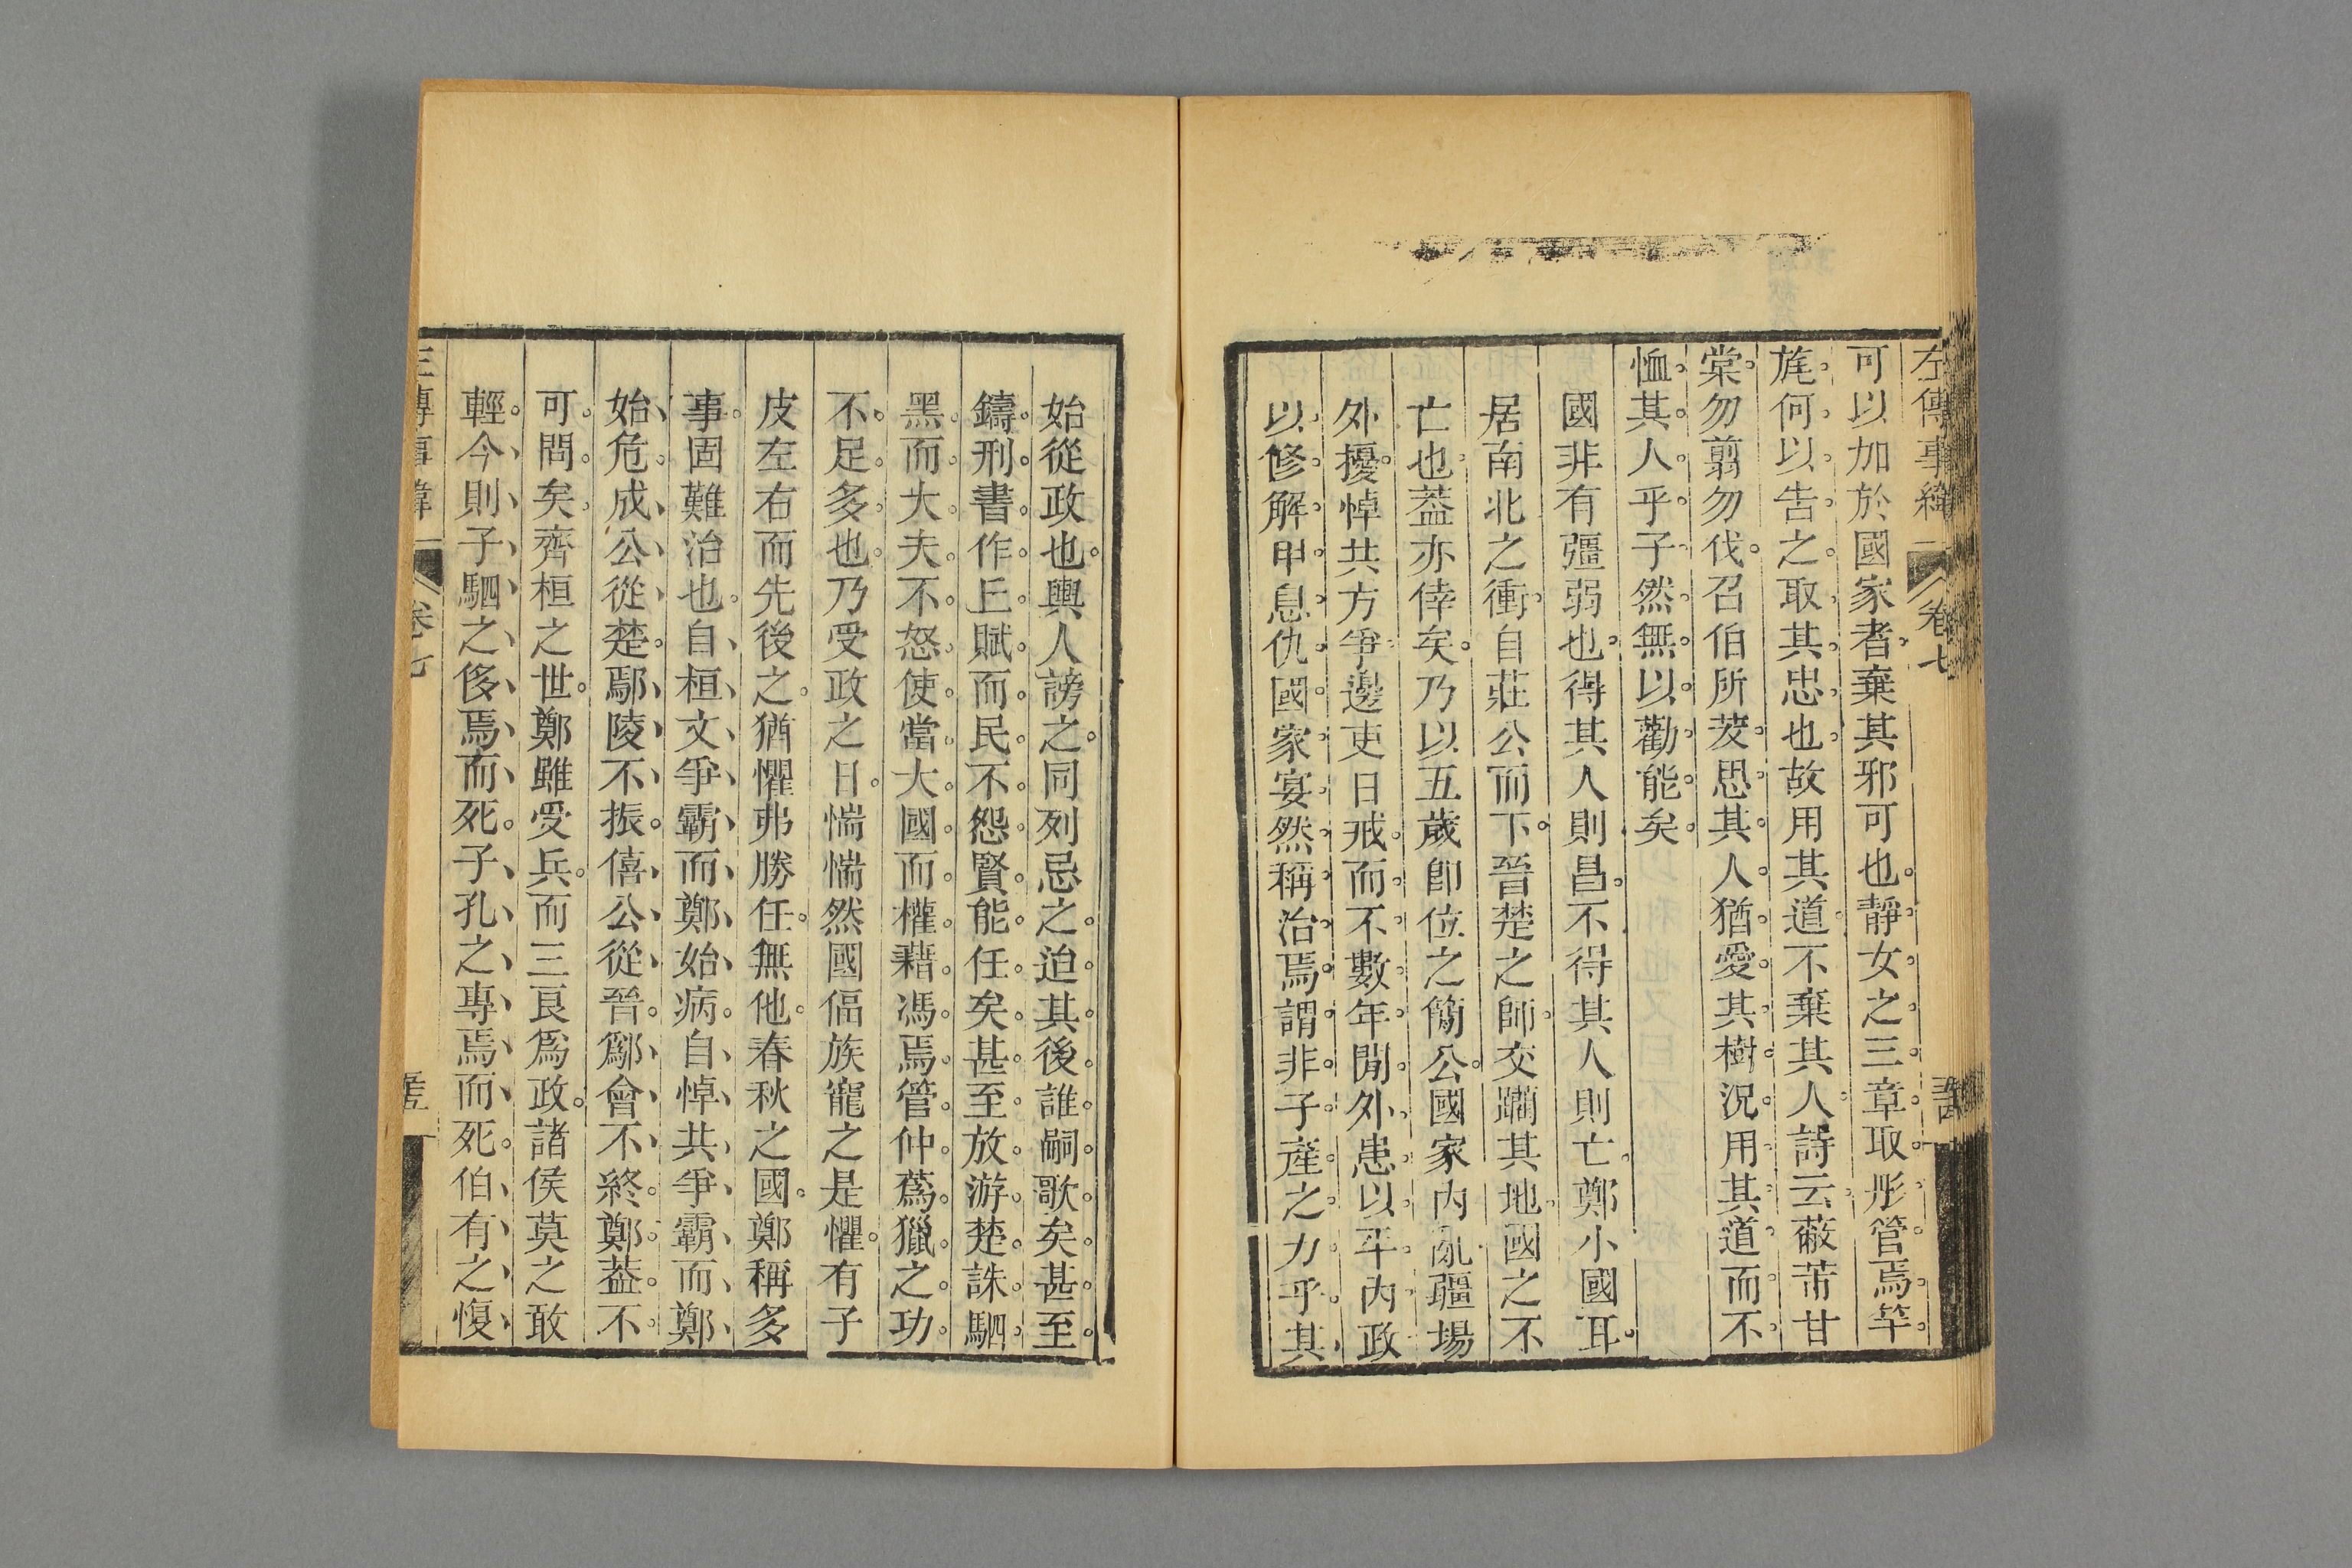 左傳事緯 卷七
可以加於國家者棄其邪可也靜女之三章取彤管焉竿
旄何以告之取其忠也故用其道不棄其人詩云蔽芾甘
棠勿翦勿伐召伯所茇思其人猶愛其樹況用其道而不
恤其人乎子然無以勸能矣
國非有彊弱也得其人則昌不得其人則亡鄭小國耳
居南北之衝自莊公而下晉楚之師交躪其地國之不
亡也葢亦倖矣乃以五歲卽位之簡公國家內亂疆場
外擾悼共方爭邊吏日戒而不數年閒外患以平內政
以修解甲息仇國家宴然稱治焉謂非子產之力乎其
始從政也輿人謗之同列忌之迫其後誰嗣歌矣甚至
鑄刑書作丘賦而民不怨賢能任矣甚至放游楚誅駟
黑而大夫不怒使當大國而權藉馮焉管仲蒍獵之功
不足多也乃受政之日惴惴然國偪族寵之是懼有子
皮左右而先後之猶懼弗勝任無他春秋之國鄭稱多
事固難治也自桓文爭霸而鄭始病自悼共爭霸而鄭
始危成公從楚鄢陵不振僖公從晉鄬會不終鄭葢不
可問矣齊桓之世鄭雖受兵而三良爲政諸侯莫之敢
輕今則子駟之侈焉而死子孔之專焉而死伯有之愎
傳事緯 卷七